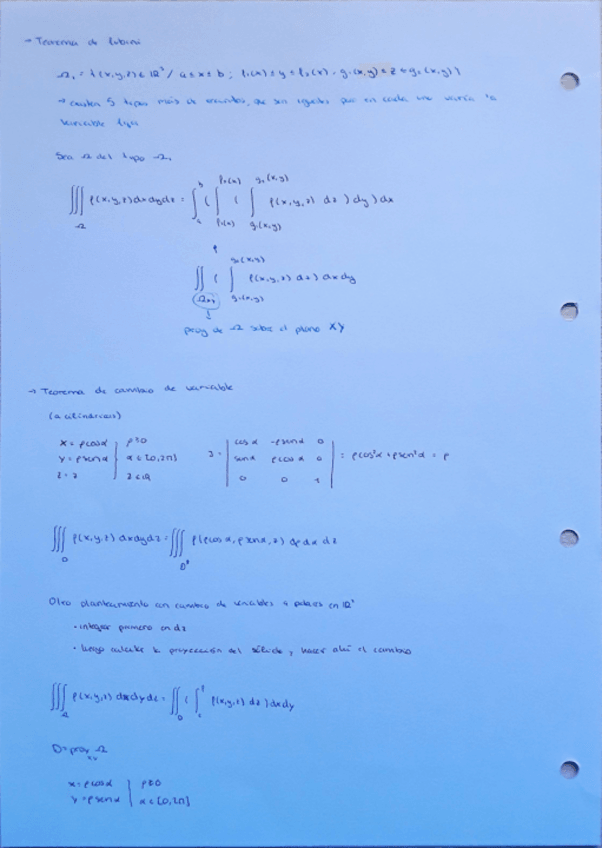 → Teorema de Fubini
Ω₁ = {(x,y,z) ∈ ℝ³ / a ≤ x ≤ b ; f₁(x) ≤ y ≤ f₂(x), g₁(x,y) ≤ z ≤ g₂(x,y)}
→ existen 5 tipos más de recintos, que son iguales pero en cada uno varía la
variable fija
Sea Ω del tipo Ω₁
∭_Ω f(x,y,z) dx dy dz = ∫_a^b ( ∫_{f₁(x)}^{f₂(x)} ( ∫_{g₁(x,y)}^{g₂(x,y)} f(x,y,z) dz ) dy ) dx
∬_{Ωxy} ( ∫_{g₁(x,y)}^{g₂(x,y)} f(x,y,z) dz ) dx dy
proy de Ω sobre el plano XY
→ Teorema de cambio de variable
(a cilíndricas)
x = ρ cos α | ρ ≥ 0
y = ρ sen α | α ∈ [0, 2π]
z = z | z ∈ ℝ
J = | cos α -ρ sen α 0 |
| sen α ρ cos α 0 | = ρ cos² α + ρ sen² α = ρ
| 0 0 1 |
∭_D f(x,y,z) dx dy dz = ∭_{D*} f(ρ cos α, ρ sen α, z) dρ dα dz
Otro planteamiento con cambio de variables a polares en ℝ²
· integrar primero en dz
· luego calcular la proyección del sólido y hacer ahí el cambio
∭_Ω f(x,y,z) dx dy dz = ∬_D ( ∫ f(x,y,z) dz ) dx dy
D = proy_{xy} Ω
x = ρ cos α | ρ ≥ 0
y = ρ sen α | α ∈ [0, 2π]